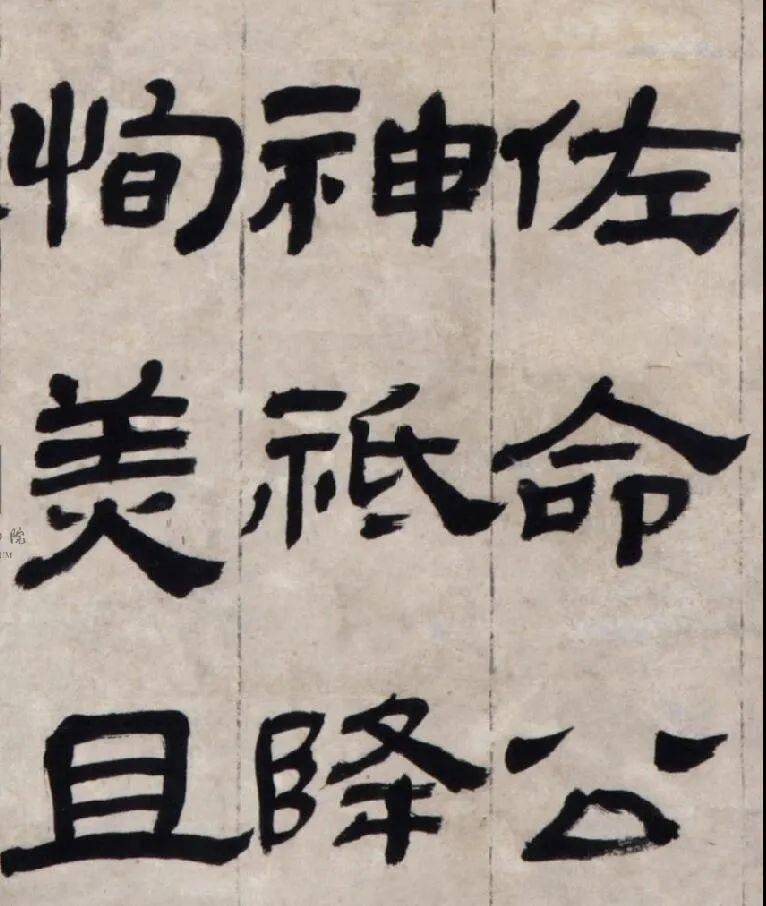 佐命公
神祇降
恂美且
院
UM